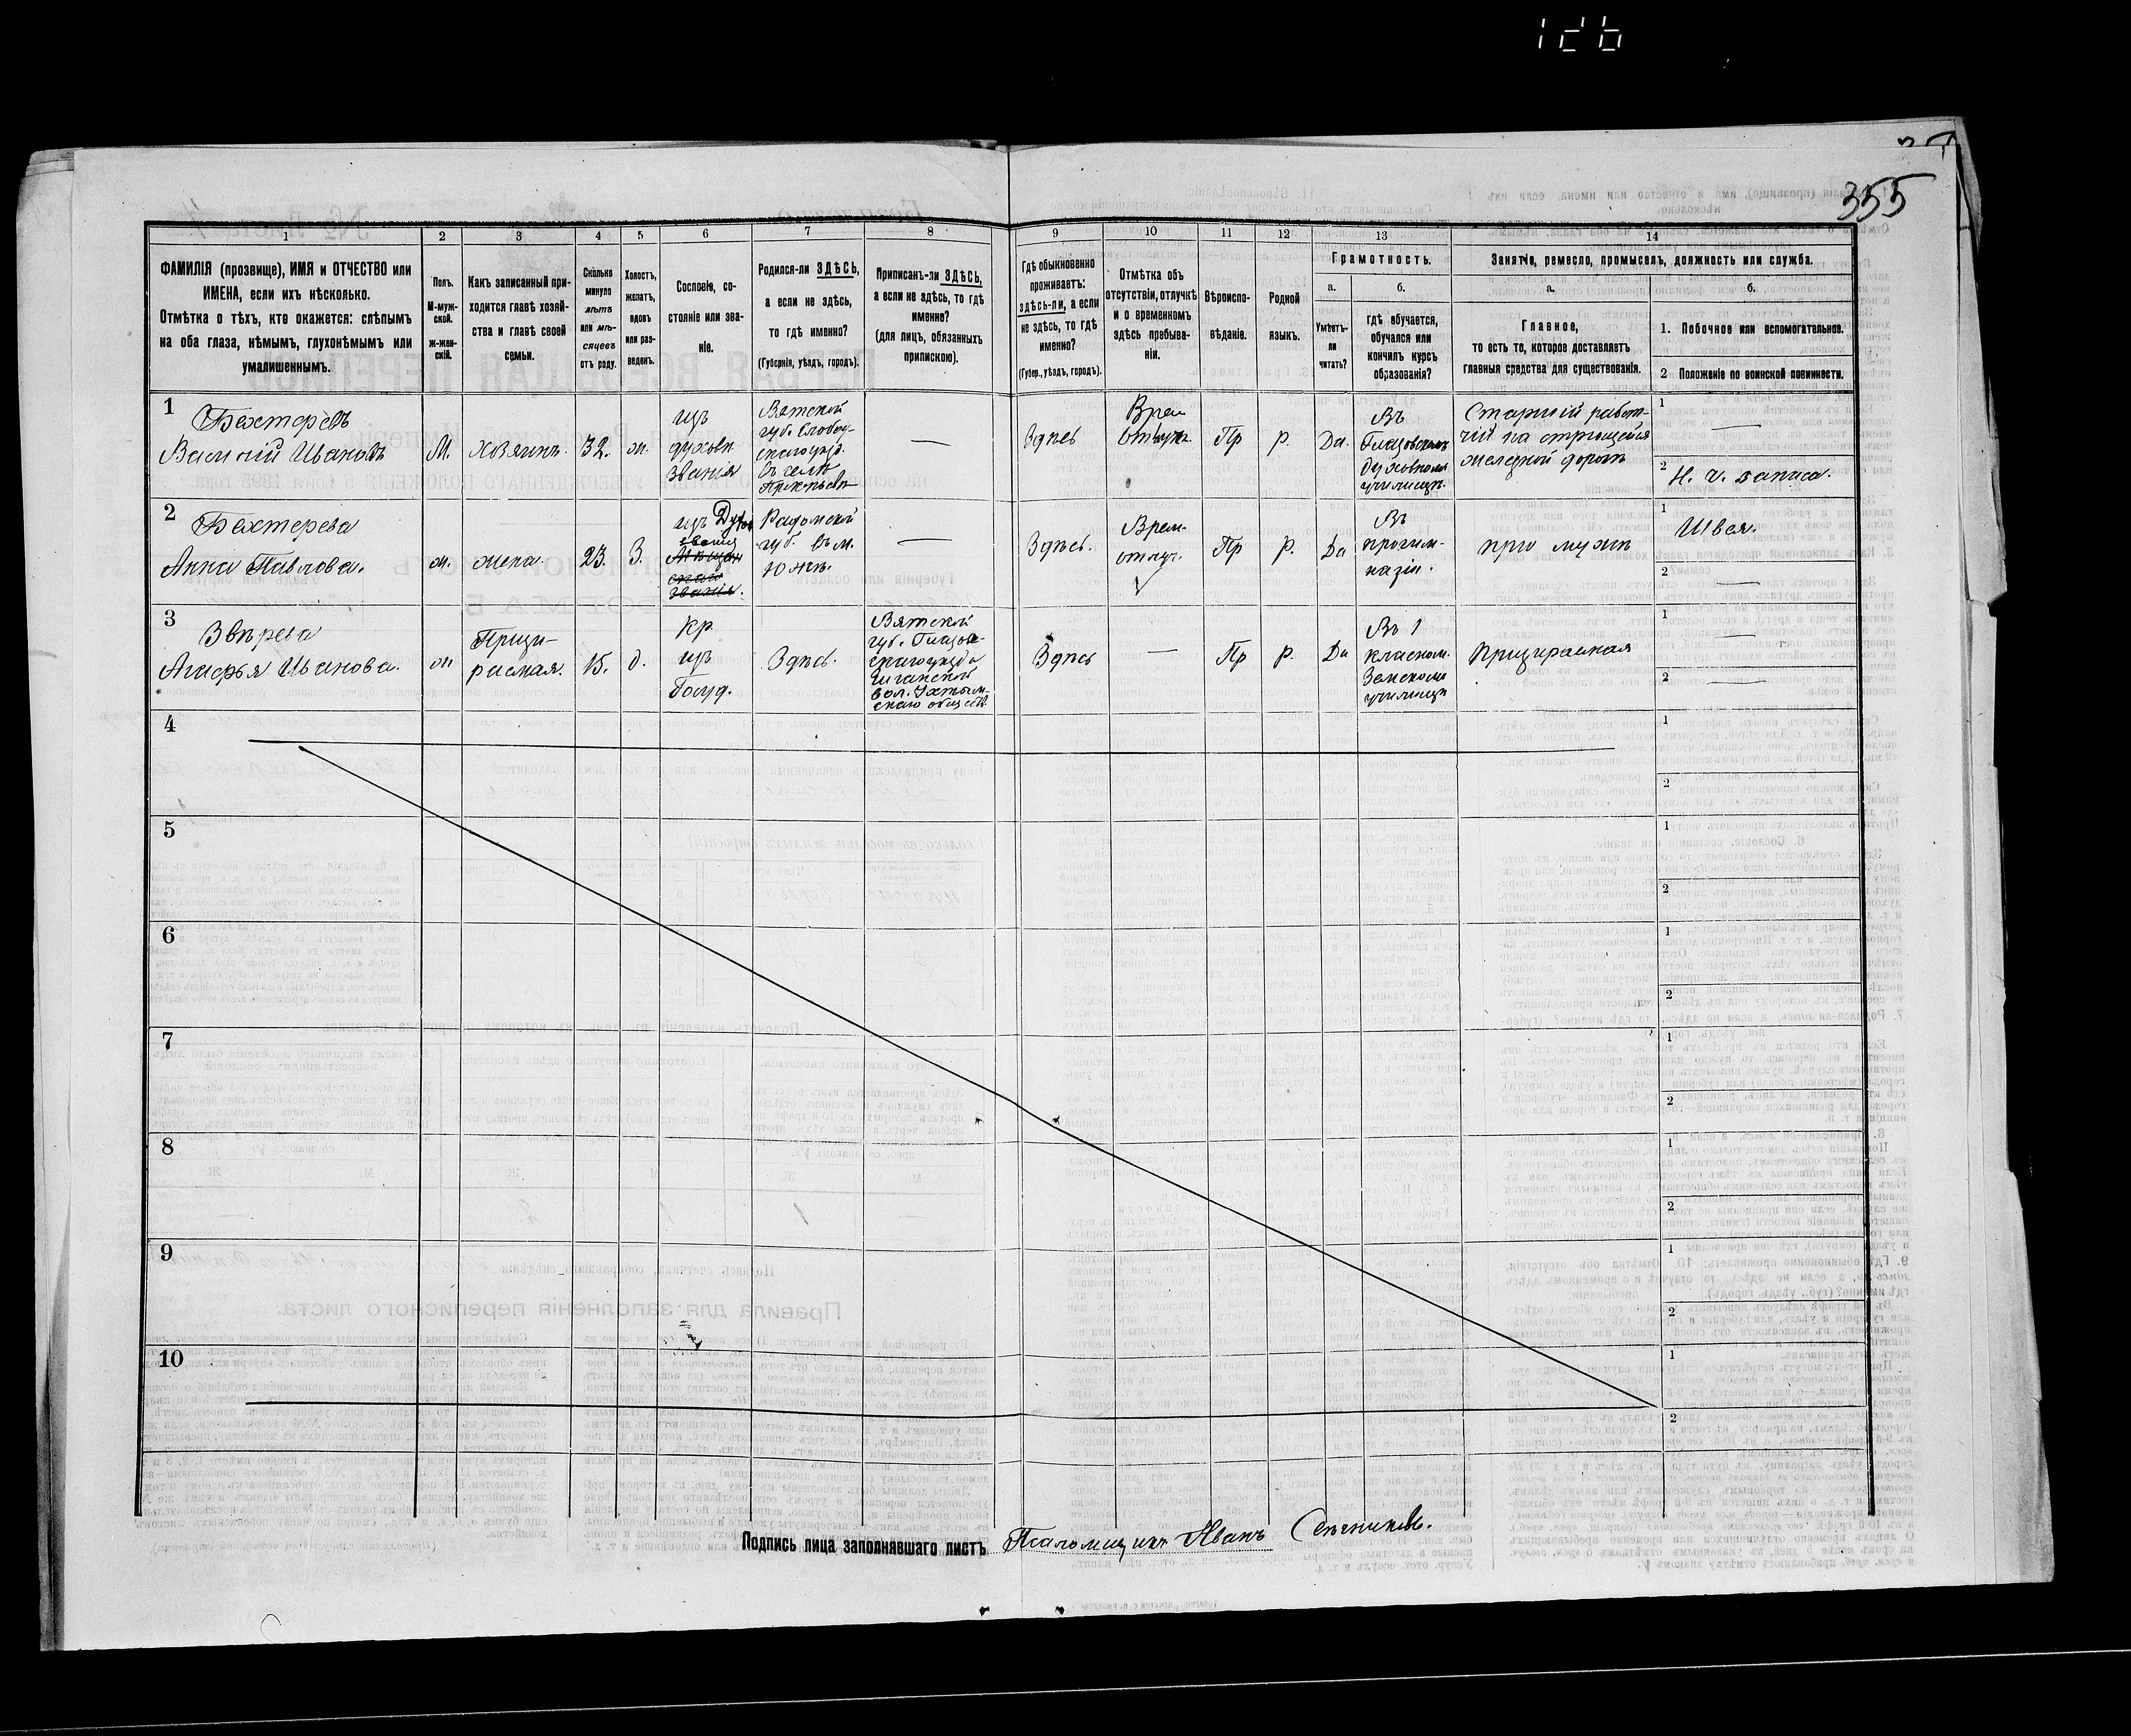 355
1 2 3 4 5 6 7 8 9 10 11 12 13 14
ФАМИЛІЯ (прозвище), ИМЯ и ОТЧЕСТВО или
ИМЕНА, если ихъ нѣсколько.
Отмѣтка о тѣхъ, кто окажется: слѣпымъ
на оба глаза, нѣмымъ, глухонѣмымъ или
умалишеннымъ.
Полъ.
М-муж-
ской.
ж-жен-
скій.
Какъ записанный при-
ходится главѣ хозяй-
ства и главѣ своей
семьи.
Сколько
минуло
лѣтъ
или мѣ-
сяцевъ
отъ роду.
Холостъ,
женатъ,
вдовъ
или раз-
веденъ.
Сословіе, со-
стояніе или зва-
ніе.
Родился-ли ЗДѢСЬ,
а если не здѣсь,
то гдѣ именно?
(Губернія, уѣздъ, городъ).
Приписанъ-ли ЗДѢСЬ,
а если не здѣсь, то гдѣ
именно?
(для лицъ, обязанныхъ
припискою).
Гдѣ обыкновенно
проживаетъ:
здѣсь-ли, а если
не здѣсь, то гдѣ
именно?
(Губер., уѣздъ, городъ).
Отмѣтка объ
отсутствіи, отлучкѣ
и о временномъ
здѣсь пребыва-
ніи.
Вѣроиспо-
вѣданіе.
Родной
языкъ.
Грамотность.
а.
Умѣетъ-
ли
читать?
б.
гдѣ обучается,
обучался или
кончилъ курсъ
образованія?
Занятіе, ремесло, промыселъ, должность или служба.
а.
Главное,
то есть то, которое доставляетъ
главныя средства для существованія.
б.
1. Побочное или вспомогательное.
2 Положеніе по воинской повинности.
1
Бехтеревъ
Василій Ивановъ
М.
хозяинъ.
32.
ж.
изъ
духовн.
званія
Вятской
губ. Слобод-
скаго уѣзд.
въ селѣ
—
Здѣсь
Врем
отлуч.
Пр
р.
Да.
Въ
Глазовскомъ
духовномъ
училищѣ.
Старшій рабоч-
чій на строющейся
желѣзной дорогѣ
1 —
2 Н. ч. запаса.
2
Бехтерева
Анна Павлова.
ж.
жена.
23.
З.
изъ Дух.
званія
званія.
Радомской
губ. въ м.
—
Здѣсь.
Врем.
отлуч.
Пр
р.
Да
Въ
прогим-
назіи.
при мужѣ
1 Швея.
2 —
3
Звѣрева
Агафья Иванова.
ж
Призи-
раемая.
15.
д.
кр
изъ
Госуд.
Здѣсь.
Вятской
губ. Глазов-
скаго уѣзда
вол. Ухтым-
скаго общест.
Здѣсь
—
Пр
р.
Да
Въ 1
класном.
Земскомъ
училищѣ
Призираемая
1 —
2 —
4
1
2
5
1
2
6
1
2
7
1
2
8
1
2
9
1
2
10
1
2
Подпись лица заполнявшаго листъ Псаломщикъ Иванъ